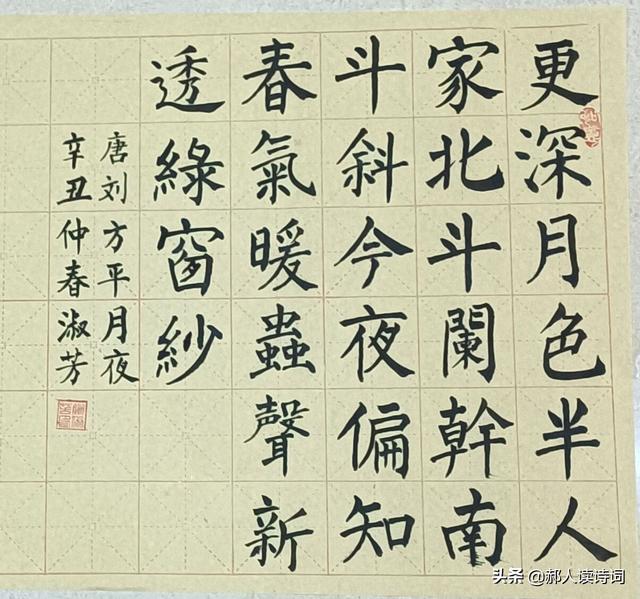 更深月色半人
家北斗闌幹南
斗斜今夜偏知
春氣暖蟲聲新
透綠窗紗
唐刘方平月夜
辛丑仲春淑芳
头条 @郝人读诗词